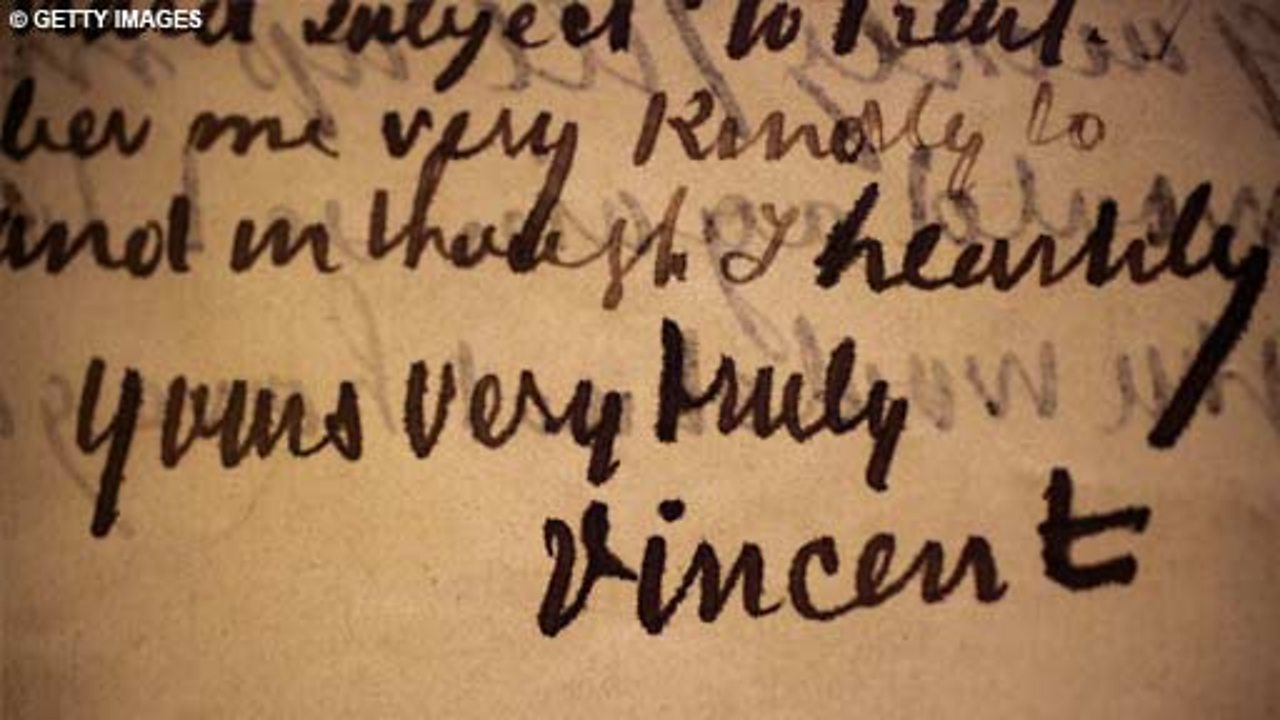 © GETTY IMAGES
subject to treat.
ber me very Kindly to
and in thought I heartily
yours very truly
Vincent